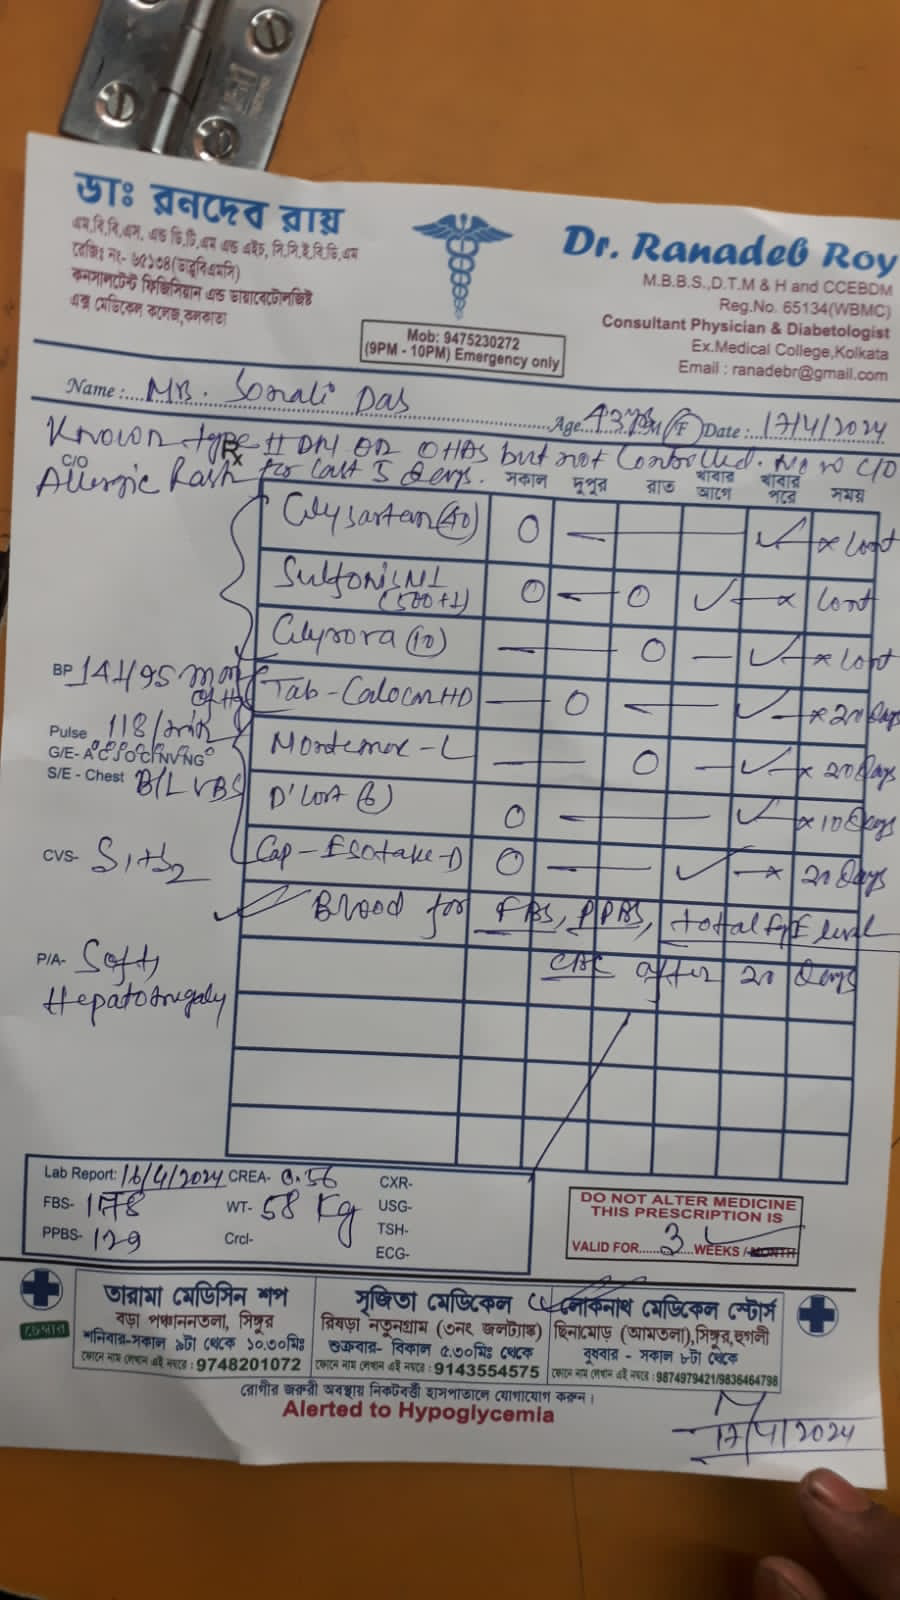 ডাঃ রনদেব রায়
এম.বি.বি.এস, এন্ড ডি.টি.এম এন্ড এইচ, সি.সি.ই.বি.ডি.এম
রেজিঃ নং- ৬৫১৩৪(ডাবুবিএমসি)
কনসালটেন্ট ফিজিসিয়ান এন্ড ডায়াবেটোলজিষ্ট
এক্স মেডিকেল কলেজ,কলকাতা
Dr. Ranadeb Roy
M.B.B.S.,D.T.M & H and CCEBDM
Reg.No. 65134(WBMC)
Consultant Physician & Diabetologist
Ex.Medical College,Kolkata
Email : ranadebr@gmail.com
Mob: 9475230272
(9PM - 10PM) Emergency only
Name : Mrs. Sonali Das Age 43 yrs M/F Date : 17/4/2024
Known type II DM on OHAs but not Controlled. Now C/O
C/O Rx
Allergic Rash for last 5 days.
সকাল দুপুর রাত খাবার আগে খাবার পরে সময়
Glysartan (40) O ✓ x Cont
(500+1) O O ✓ x Cont
(10) O ✓ x Cont
BP 141/95 mm of Hg
Tab - HD O ✓ x 20 days
Pulse 118/min
G/E-
- L O ✓ x 20 days
S/E - Chest B/L VBS
D'Cort (6) O ✓ x 10 days
CVS- S1 + S2
Cap - D O ✓ x 20 days
Blood for FBS, PPBS, total IgE level
CBC after 20 days
P/A- Soft,
Lab Report: 16/4/2024 CREA- 0.56 CXR-
FBS- 178 WT- 58 Kg USG-
PPBS- 129 Crcl- TSH-
ECG-
DO NOT ALTER MEDICINE
THIS PRESCRIPTION IS
VALID FOR 3 WEEKS / MONTH
চেম্বার
তারামা মেডিসিন শপ
বড়া পঞ্চাননতলা, সিঙ্গুর
শনিবার-সকাল ৯টা থেকে ১০.৩০মিঃ
ফোনে নাম লেখান এই নম্বরে : 9748201072
সৃজিতা মেডিকেল
রিষড়া নতুনগ্রাম (৩নং জলট্যাঙ্ক)
শুক্রবার- বিকাল ৫.৩০মিঃ থেকে
ফোনে নাম লেখান এই নম্বরে : 9143554575
লোকনাথ মেডিকেল স্টোর্স
ছিনামোড় (আমতলা),সিঙ্গুর,হুগলী
বুধবার - সকাল ৮টা থেকে
ফোনে নাম লেখান এই নম্বরে : 9874979421/9836464798
রোগীর জরুরী অবস্থায় নিকটবর্ত্তী হাসপাতালে যোগাযোগ করুন।
Alerted to Hypoglycemia
17/4/2024